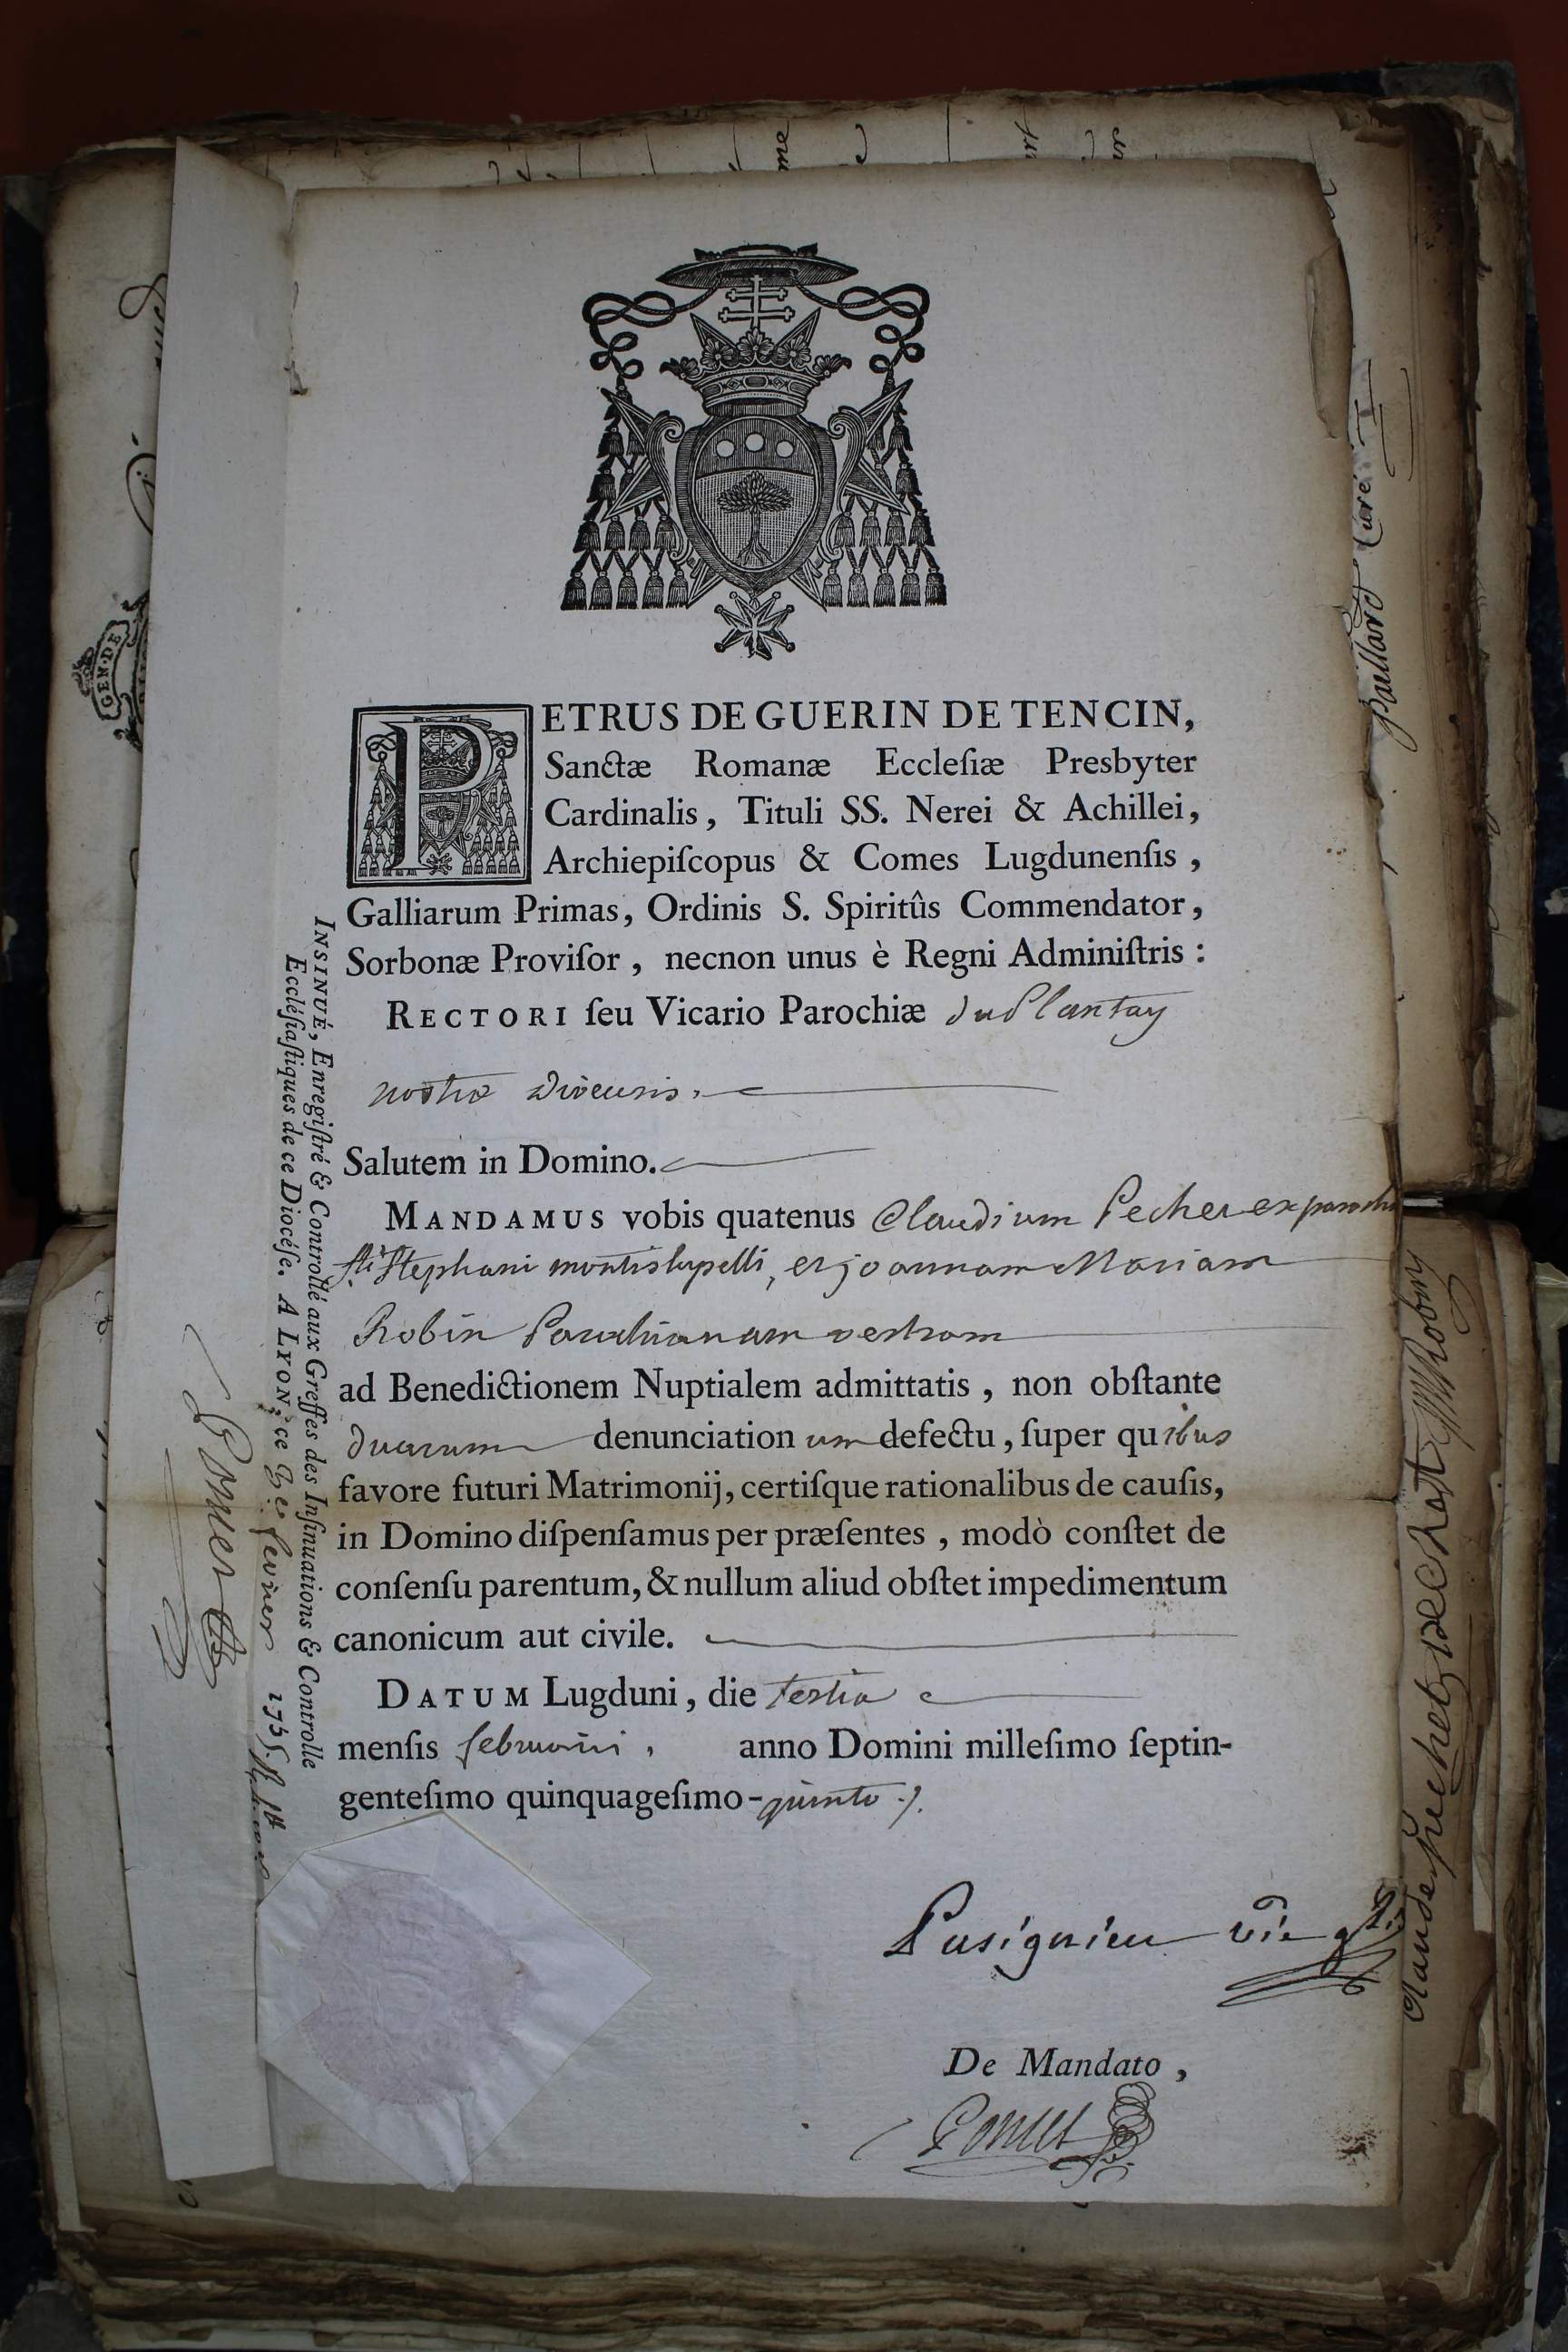 GEN·DE
PETRUS DE GUERIN DE TENCIN,
Sanctæ Romanæ Eccleſiæ Presbyter
Cardinalis, Tituli SS. Nerei & Achillei,
Archiepiſcopus & Comes Lugdunenſis,
Galliarum Primas, Ordinis S. Spiritûs Commendator,
Sorbonæ Proviſor, necnon unus è Regni Adminiſtris :
RECTORI ſeu Vicario Parochiæ du Plantay
nostræ Diœcesis.
Salutem in Domino.
MANDAMUS vobis quatenus Claudium Pecher ex parochia
sti Stephani montislupelli, et joannam Mariam
Robin Parochianam vestram
ad Benedictionem Nuptialem admittatis, non obſtante
duarum denunciationum defectu, ſuper quibus
favore futuri Matrimonij, certiſque rationalibus de cauſis,
in Domino diſpenſamus per præſentes, modò conſtet de
conſenſu parentum, & nullum aliud obſtet impedimentum
canonicum aut civile.
DATUM Lugduni, die tertia
menſis februarii, anno Domini milleſimo ſeptin-
genteſimo quinquageſimo-quinto
De Mandato,
INSINUÉ, Enregiſtré & Controllé aux Greffes des Inſinuations & Controlle
Eccléſiaſtiques de ce Diocéſe. A LYON, ce 3e fevrier 1755.
Paillard Curé